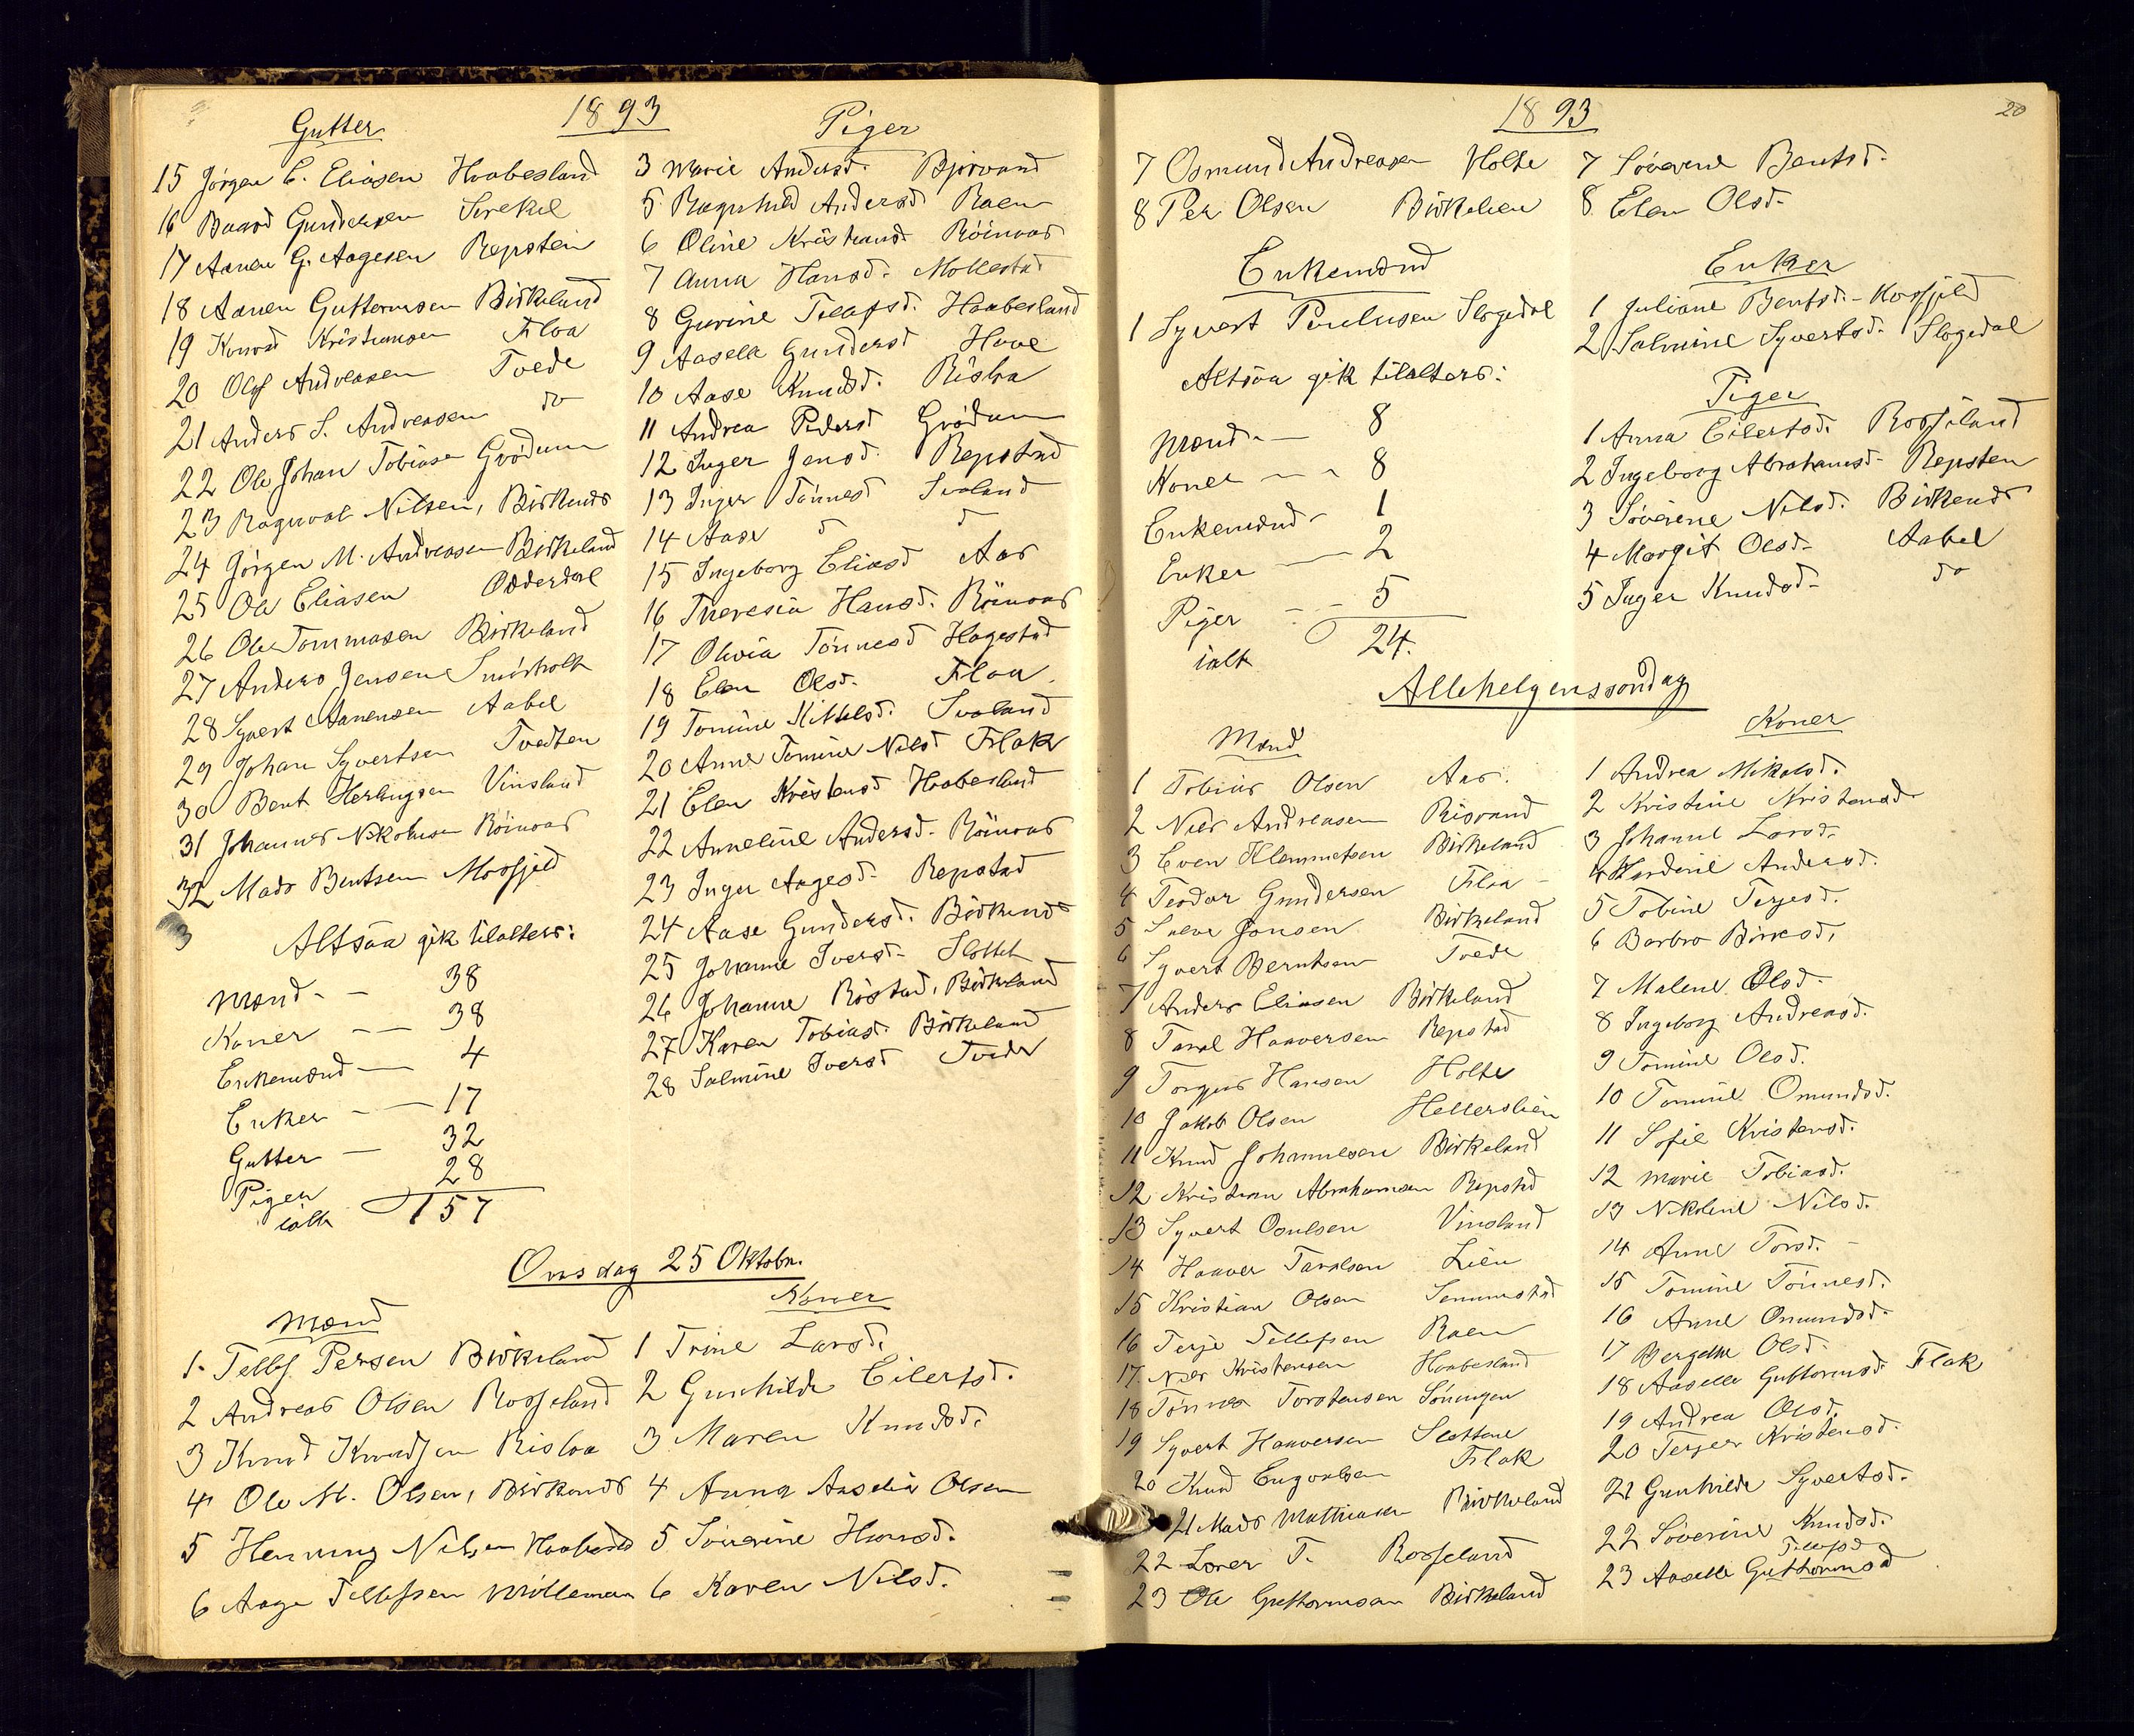 1893
Gutter
15 Jørgen E. Eliasen Haabesland
16 Baard Gundersen Sirekil
17 Aanen G. Aagesen Repsten
18 Aanen Guttormsen Birkeland
19 Konrad Kristiansen Floa
20 Olaf Andreasen Tvede
21 Anders S. Andreasen do
22 Ole Johan Tobiasen Grødum
23 Ragnvald Nilsen, Birkenes
24 Jørgen M. Andreasen Birkeland
25 Ole Eliasen Odderdal
26 Ole Tommasen Birkeland
27 Anders Jensen
28 Syvert Aanensen Aabel
29 Johan Syvertsen Tvedten
30 Bent Herlugsen Vinsland
31 Johannes Nikolaisen Röinaas
32 Mads Bentsen Mosfjeld
3
Altsaa gik tilalters:
Mænd - - 38
Koner - - 38
Enkemænd - 4
Enker - - 17
Gutter - 32
Piger 28
ialt 157
Piger
3 Marie Andersd. Bjorvand
5 Ragnhild Andersd Raen
6 Oline Kristiansd Röinaas
7 Anna Hansd. Mollestad
8 Gurine Tellefsd. Haabesland
9 Aaselle Gundersd Hove
10 Aase Knudsd. Risløa
11 Andrea Pedersd Grødum
12 Inger Jensd. Repstad
13 Inger Tønnesd Svaland
14 Aase d d
15 Ingeborg Eliasd Aas
16 Theresia Hansd. Röinaas
17 Olivia Tønnesd Hagestad
18 Elen Olsd. Floa
19 Tomine Kittelsd. Svaland
20 Anne Tomine Nilsd Flak
21 Elen Kristensd Haabesland
22 Anneline Andersd. Röinaas
23 Inger Aagesd. Repstad
24 Aase Gundersd. Birkenes
25 Johanne Iversd. Slottet
26 Johanne Röstad, Birkeland
27 Karen Tobiasd. Birkeland
28 Salmine Iversd Tvede
Onsdag 25 Oktobr.
Mænd
1. Tellef Persen Birkeland
2 Andreas Olsen Rosseland
3 Knud Knudsen Risløa
4 Ole M. Olsen, Birkenes
5 Henning Nilsen Haabesld
6 Aage Tellefsen Mölleman
Koner
1 Trine Larsd.
2 Gunhilde Eilertsd.
3 Maren Knudsd.
4 Anna Aaselia Olsen
5 Severine Hansd.
6 Karen Nilsd.
1893
20
7 Osmund Andreasen Holte
8 Per Olsen Birkelien
7 Søverine Bentsd.
8 Elen Olsd.
Enkemænd
1 Syvert Paulusen Slogedal
Altsaa gik tilalters:
Mænd - 8
Koner - - 8
Enkemænd - 1
Enker - 2
Piger - - 5
ialt 24.
Enker
1 Juliane Bentsd. - Mosfjeld
2 Salmine Syvertsd. Slogedal
Piger
1 Anna Eilertsd. Rosseland
2 Ingeborg Abrahamsd. Repsten
3 Søverine Nilsd. Birkenes
4 Margit Olsd. Aabel
5 Inger Knudsd. do
Allehelgenssøndag
Mænd
1 Tobias Olsen Aas.
2 Nils Andreasen Risvand
3 Even Klemmetsen Birkeland
4 Teodor Gundersen Floa
5 Salve Jonsen Birkeland
6 Syvert Berntsen Tvede
7 Anders Eliasen Birkeland
8 Taral Haaversen Repstad
9 Torgjus Hansen Holte
10 Jakob Olsen Hellerslien
11 Knud Johannesen Birkeland
12 Kristian Abrahamsen Repstad
13 Syvert Osulsen Vinsland
14 Haaver Taralsen Lien
15 Kristian Olsen
16 Terje Tellefsen Raen
17. Nils Kristensen Haabesland
18 Tønnes Torstensen Söningen
19 Syvert Haaversen Slettene
20 Knud Engvaldsen Flak
21 Mads Mathiasen Birkeland
22 Lorens T. Rosseland
23 Ole Guttormsen Birkeland
Koner
1 Andrea Mikalsd.
2 Kristine Kristensd
3 Johanne Larsd.
4 Andersd.
5 Tobine Terjesd.
6 Barbro
7 Malene Olsd.
8 Ingeborg Andreasd.
9 Tomine Olsd.
10 Tomine Omundsd.
11 Sofie Kristensd.
12 Marie Tobiasd.
13 Nikoline Nilsd.
14 Anne Torsd.
15 Tomine Tönnesd.
16 Anne Omundsd.
17 Bergethe Olsd.
18 Aaselle Guttormsd. Flak
19 Andrea Olsd.
20 Terjer Kristensd.
21 Gunhilde Syvertsd.
22 Söverine Knudsd.
Tellefsd
23 Aaselle Guttormsd